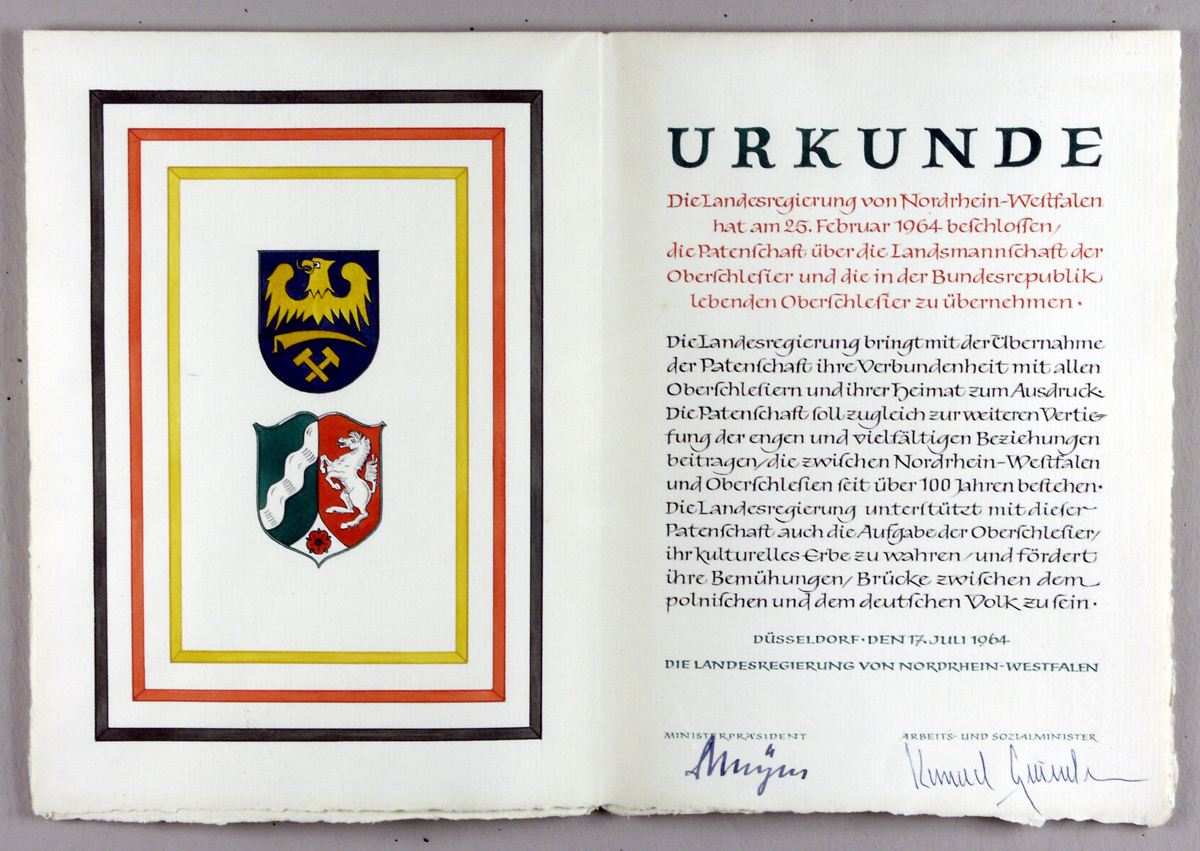 URKUNDE
Die Landesregierung von Nordrhein-Westfalen
hat am 25. Februar 1964 beschlossen,
die Patenschaft über die Landsmannschaft der
Oberschlesier und die in der Bundesrepublik
lebenden Oberschlesier zu übernehmen.
Die Landesregierung bringt mit der Übernahme
der Patenschaft ihre Verbundenheit mit allen
Oberschlesiern und ihrer Heimat zum Ausdruck.
Die Patenschaft soll zugleich zur weiteren Vertie-
fung der engen und vielfältigen Beziehungen
beitragen, die zwischen Nordrhein-Westfalen
und Oberschlesien seit über 100 Jahren bestehen.
Die Landesregierung unterstützt mit dieser
Patenschaft auch die Aufgabe der Oberschlesier,
ihr kulturelles Erbe zu wahren, und fördert
ihre Bemühungen, Brücke zwischen dem
polnischen und dem deutschen Volk zu sein.
DÜSSELDORF · DEN 17. JULI 1964
DIE LANDESREGIERUNG VON NORDRHEIN-WESTFALEN
MINISTERPRÄSIDENT
ARBEITS- UND SOZIALMINISTER
Konrad